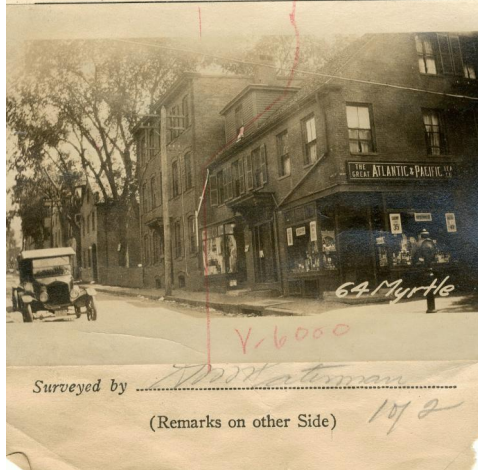 THE GREAT ATLANTIC & PACIFIC TEA CO.
64 Myrtle
V-6000
Surveyed by Waterman
(Remarks on other Side)
1 of 2